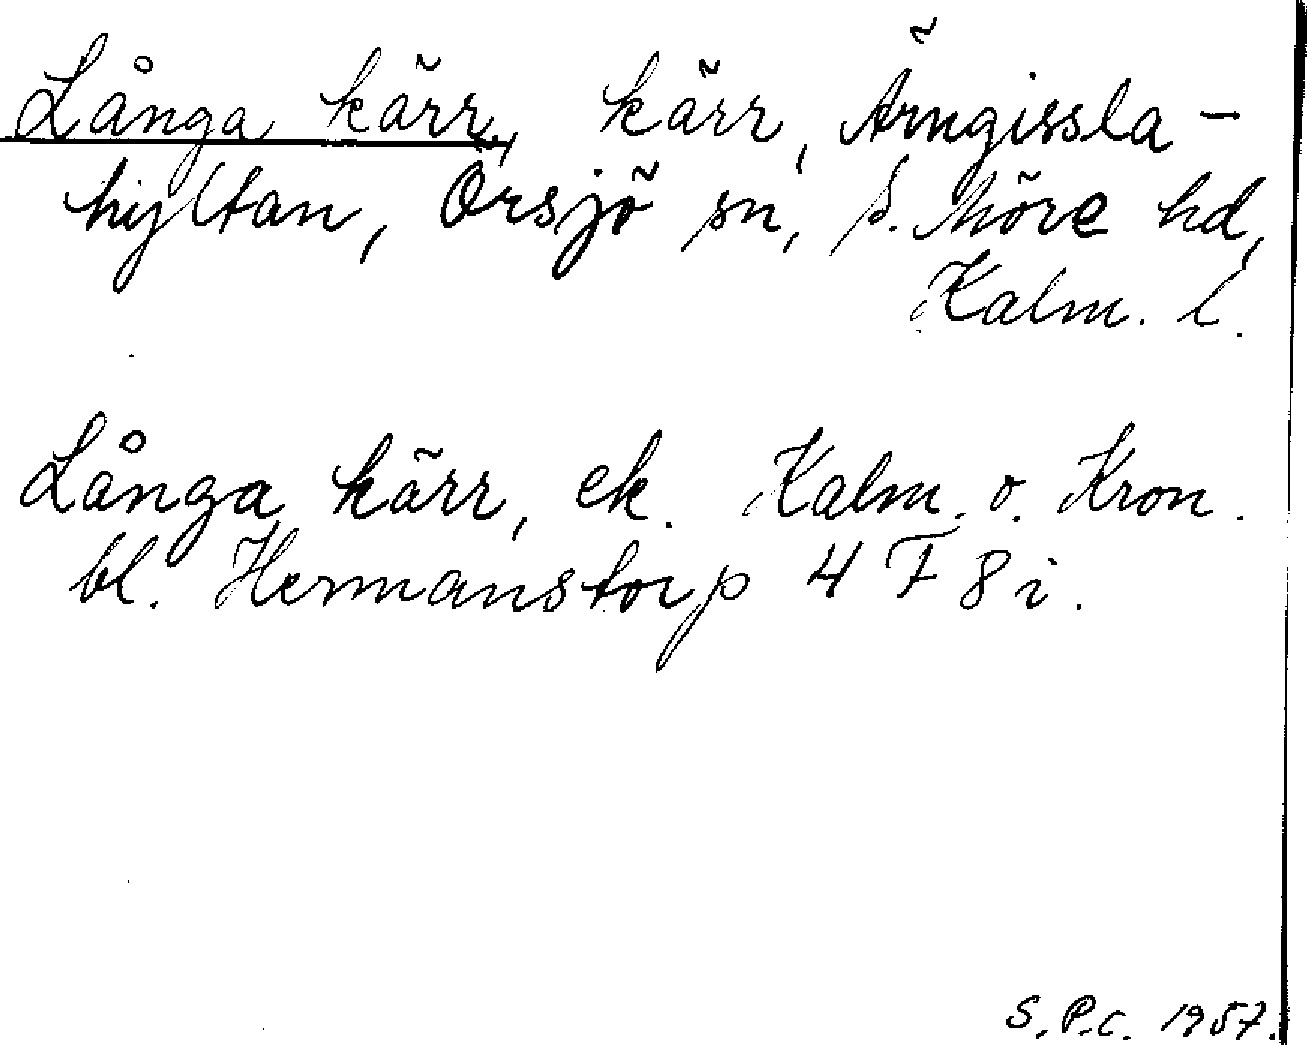 Långa kärr, kärr, Ärngissla-
hyltan, Örsjö sn, S. Möre hd,
Kalm. l.
Långa kärr, ek. Kalm. o. Kron.
bl. Hermanstorp 4 F 8 i.
S.P.C. 1957.